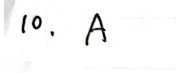 10. A